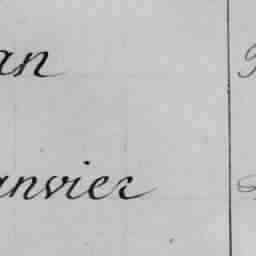 an
anvier